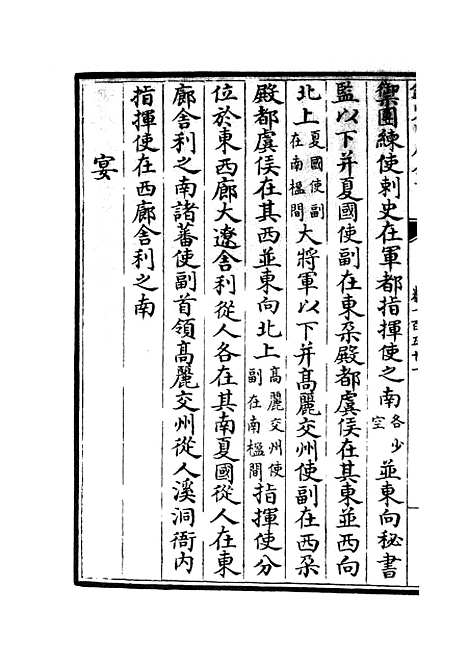 禦團練使刺史在軍都指揮使之南各少空並東向秘書
監以下并夏國使副在東朵殿都虞侯在其東並西向
北上夏國使副在南楹間大將軍以下并髙麗交州使副在西朵
殿都虞侯在其西並東向北上髙麗交州使副在南楹間指揮使分
位於東西廊大遼舍利從人各在其南夏國從人在東
廊舍利之南諸蕃使副首領髙麗交州從人溪洞衙内
指揮使在西廊舍利之南
宴